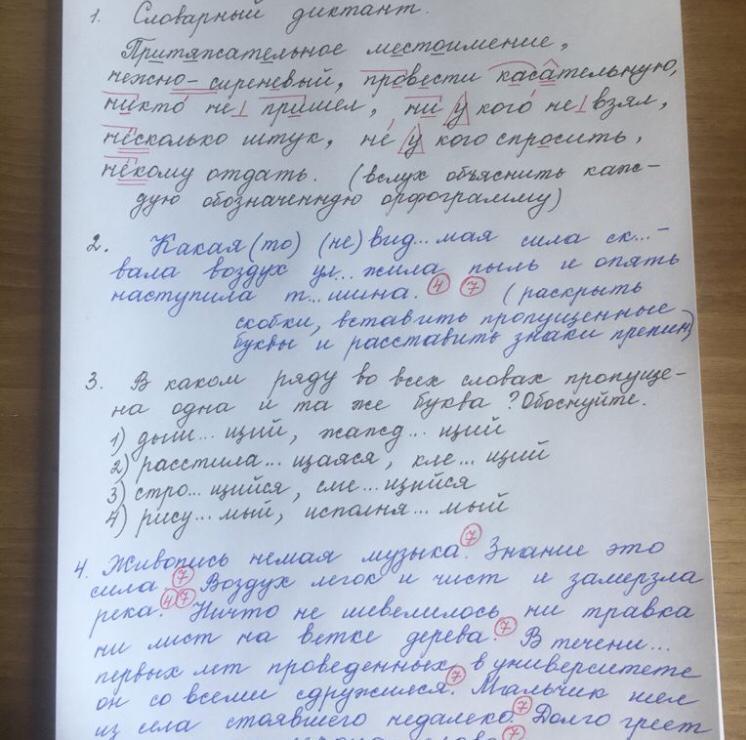 1. Словарный диктант.
Притяжательное местоимение,
нежно-сиреневый, провести касательную,
никто не пришел, ни у кого не взял,
несколько штук, не у кого спросить,
некому отдать. (вслух объяснить каж-
дую обозначенную орфограмму)
2. Какая (то) (не) вид...мая сила ск...-
вала воздух ул...жила пыль и опять
наступила т...шина. 4 7 (раскрыть
скобки, вставить пропущенные
буквы и расставить знаки препин)
3. В каком ряду во всех словах пропуще-
на одна и та же буква? Обоснуйте.
1) дыш...щий, жажд...щий
2) расстила...щаяся, кле...щий
3) стро...щийся, сме...щийся
4) рису...мый, исполня...мый
4. Живопись немая музыка. 7 Знание это
сила 7 Воздух легок и чист и замерзла
река. 4 7 Ничто не шевелилось ни травка
ни лист на ветке дерева. 7 В течени...
первых лет проведенных в университете
он со всеми сдружился. 7 Мальчик шел
из села стоявшего недалеко. 7 Долго греет
7